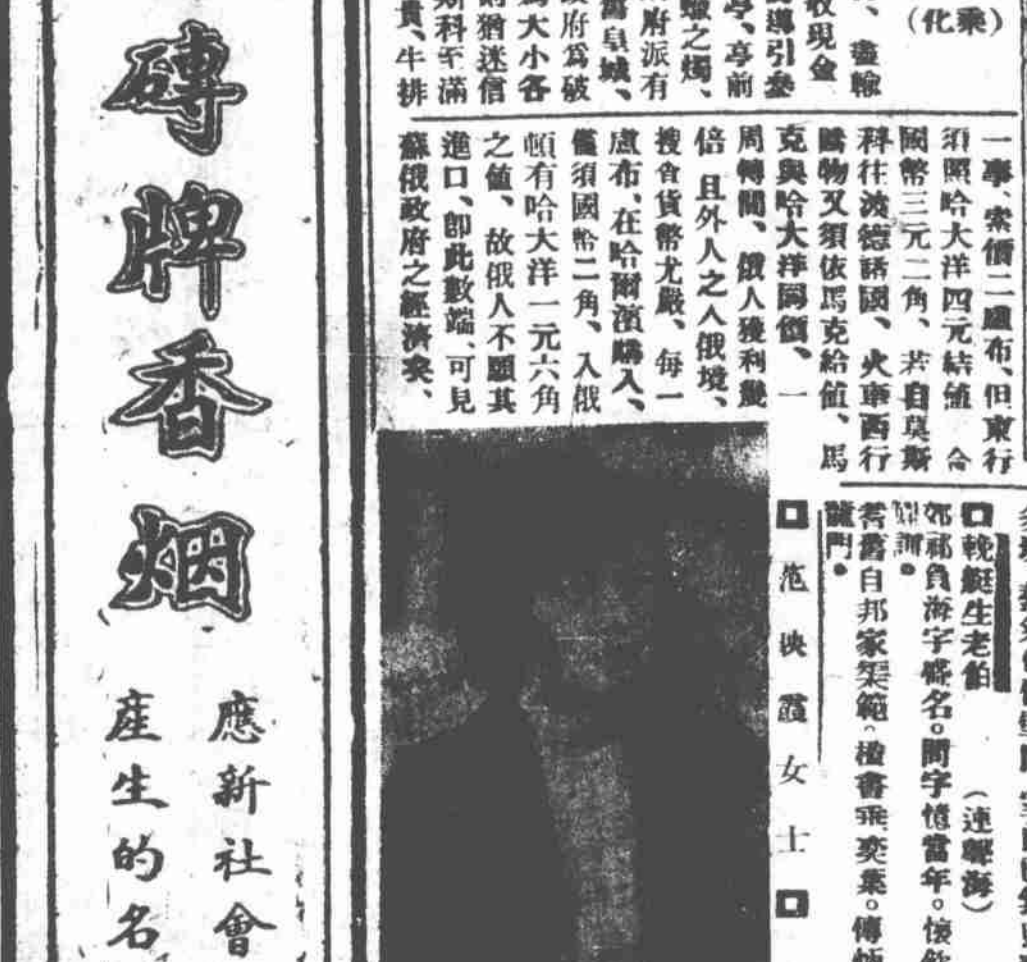 (乘化)
、盡輸
收現金
導引參
亭、亭前
蠟之燭、
府派有
舊皇城、
政府爲破
爲大小各
則猶迷信
斯科至滿
貴、牛排
一事、索價二盧布、但東行
須照哈大洋四元結值 合
國幣三元二角、若自莫斯
科往波德諸國、火車西行
購物又須依馬克給值、馬
克與哈大洋同價、一
周轉間、俄人獲利幾
倍 且外人之入俄境、
搜查貨幣尤嚴、每一
盧布、在哈爾濱購入、
僅須國幣二角、入俄
頓有哈大洋一元六角
之值、故俄人不願其
進口、卽此數端、可見
蘇俄政府之經濟矣、
輓艇生老伯 (連聲海)
祁負海宇盛名。問字憶當年。懷欽
訓。
耆舊自邦家榘範。楹書乖奕葉。傳
龍門。
范映霞女士
磚牌香烟
應新社會
產生的名